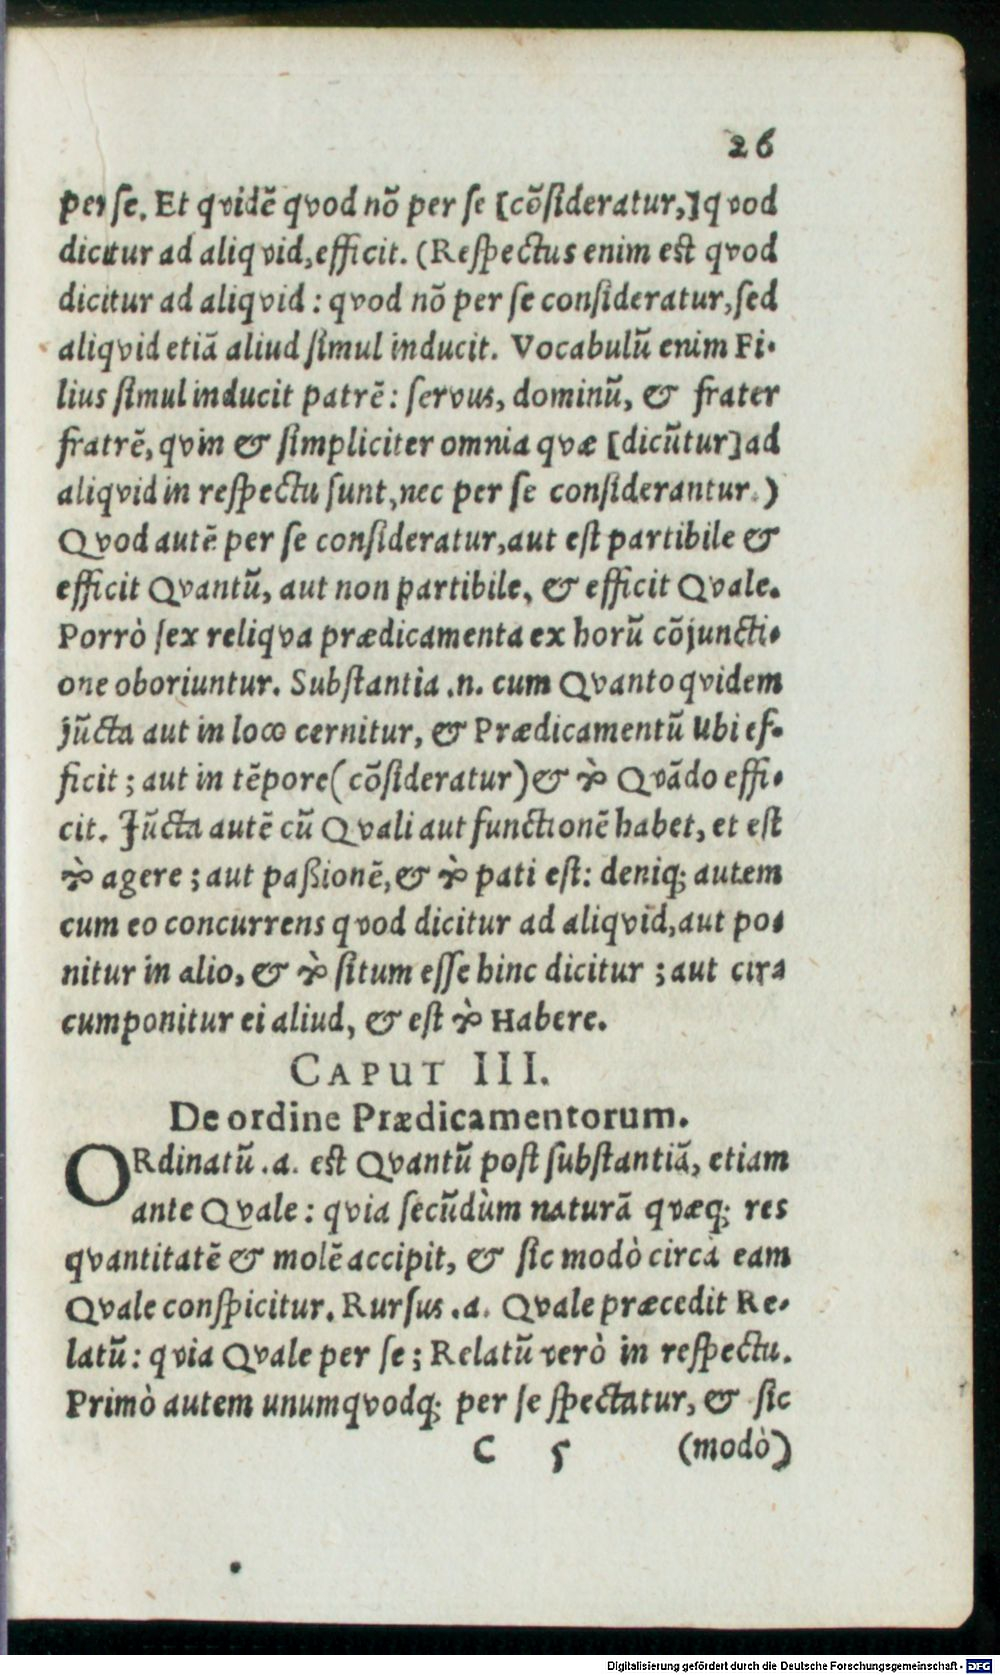 26
per se. Et qvidẽ qvod nõ per se [cõsideratur,] qvod
dicitur ad aliqvid, efficit. (Respectus enim est qvod
dicitur ad aliqvid: qvod nõ per se consideratur, sed
aliqvid etiã aliud simul inducit. Vocabulũ enim Fi-
lius simul inducit patrẽ: servus, dominũ, & frater
fratrẽ, qvin & simpliciter omnia qvæ [dicũtur] ad
aliqvid in respectu sunt, nec per se considerantur.)
Qvod autẽ per se consideratur, aut est partibile &
efficit Qvantũ, aut non partibile, & efficit Qvale.
Porrò sex reliqva prædicamenta ex horũ cõjuncti-
one oboriuntur. Substantia .n. cum Qvanto qvidem
jũcta aut in loco cernitur, & Prædicamentũ Ubi ef-
ficit; aut in tẽpore (cõsideratur) & τὸ Qvãdo effi-
cit. Jũcta autẽ cũ Qvali aut functionẽ habet, et est
τὸ agere; aut paßionẽ, & τὸ pati est: deniq; autem
cum eo concurrens qvod dicitur ad aliqvid, aut po-
nitur in alio, & τὸ situm esse hinc dicitur; aut cir-
cumponitur ei aliud, & est τὸ Habere.
CAPUT III.
De ordine Prædicamentorum.
ORdinatũ .a. est Qvantũ post substantiã, etiam
ante Qvale: qvia secũdùm naturã qvæq; res
qvantitatẽ & molẽ accipit, & sic modò circa eam
Qvale conspicitur. Rursus .a. Qvale præcedit Re-
latũ: qvia Qvale per se; Relatũ verò in respectu.
Primò autem unumqvodq; per se spectatur, & sic
C 5 (modò)
Digitalisierung gefördert durch die Deutsche Forschungsgemeinschaft - DFG